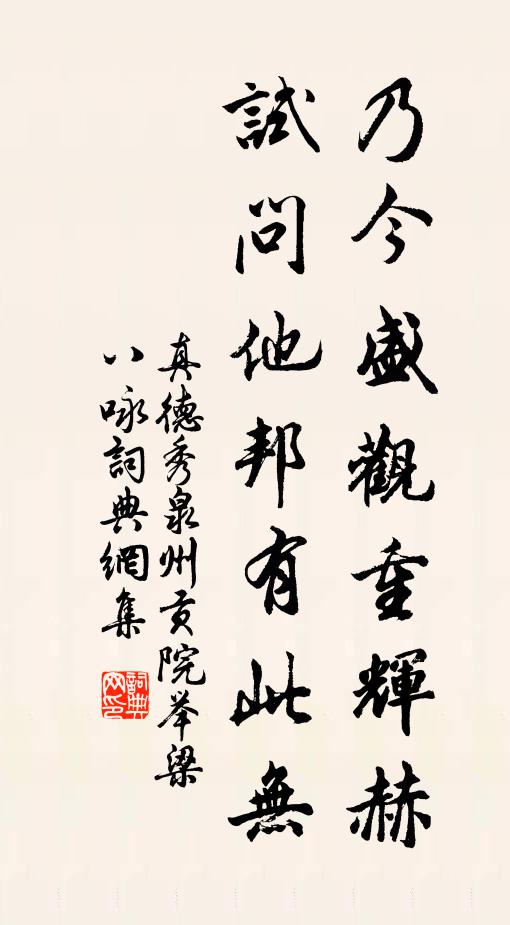 乃今盛觀重輝赫
試問他邦有此無
真德秀泉州贡院举梁
八咏詞典網集
詞典网印